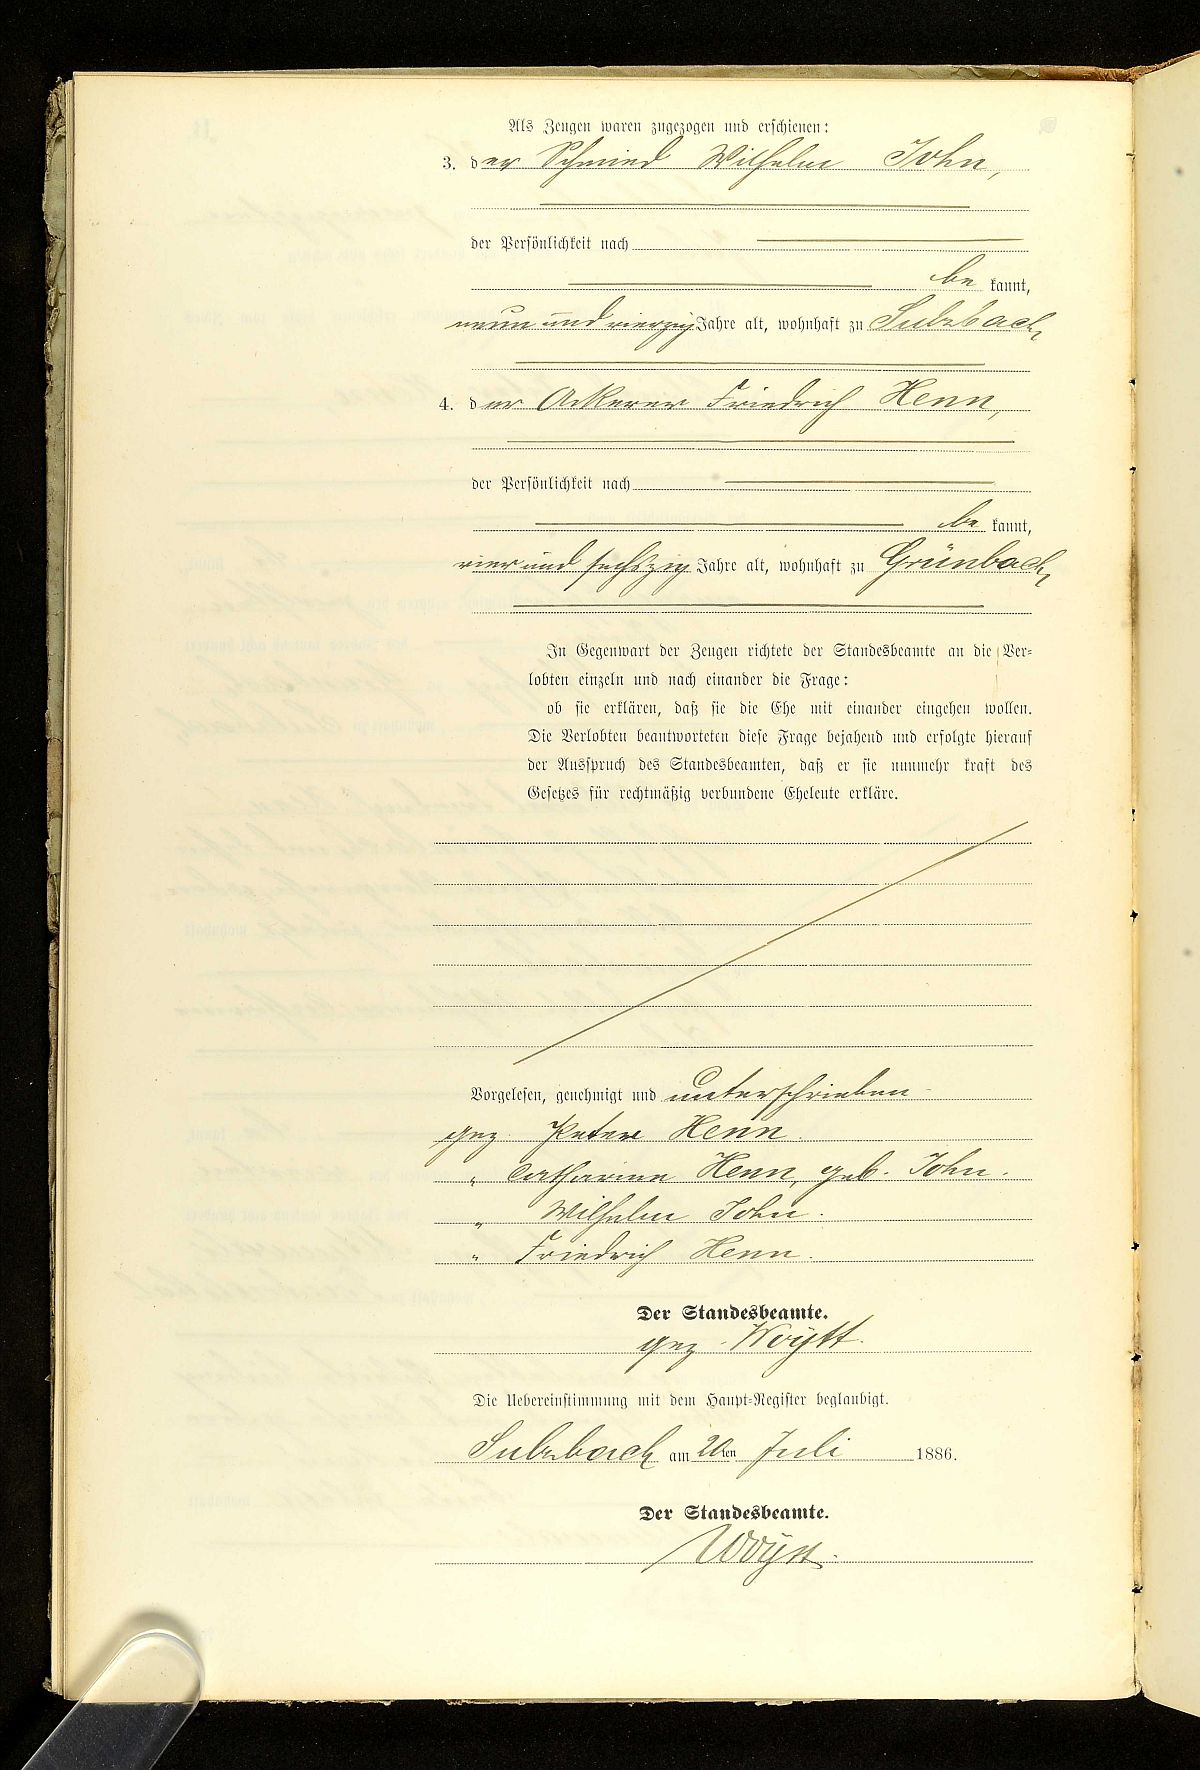 Als Zeugen waren zugezogen und erschienen:
3. der Schmied Wilhelm John,
der Persönlichkeit nach
be kannt,
neun und vierzig Jahre alt, wohnhaft zu Sulzbach,
4. der Ackerer Friedrich Henn,
der Persönlichkeit nach
be kannt,
vier und sechszig Jahre alt, wohnhaft zu Grünbach,
In Gegenwart der Zeugen richtete der Standesbeamte an die Ver-
lobten einzeln und nach einander die Frage:
ob sie erklären, daß sie die Ehe mit einander eingehen wollen.
Die Verlobten beantworteten diese Frage bejahend und erfolgte hierauf
der Ausspruch des Standesbeamten, daß er sie nunmehr kraft des
Gesetzes für rechtmäßig verbundene Eheleute erkläre.
Vorgelesen, genehmigt und unterschrieben
gez. Peter Henn.
" Catharina Henn, geb. John.
" Wilhelm John.
" Friedrich Henn.
Der Standesbeamte.
gez. Woytt.
Die Uebereinstimmung mit dem Haupt-Register beglaubigt.
Sulzbach am 20ten Juli 1886.
Der Standesbeamte.
Woytt.